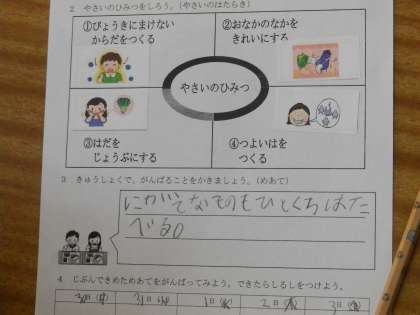 2 やさいのひみつをしろう。(やさいのはたらき)
①びょうきにまけない
からだをつくる
②おなかのなかを
きれいにする
やさいのひみつ
③はだを
じょうぶにする
④つよいはを
つくる
3 きゅうしょくで、がんばることをかきましょう。(めあて)
にがてなものもひとくちはた
べる。
4 じぶんできめためあてをがんばってみよう。できたらしるしをつけよう。
30日 31日 1日 2日 3日